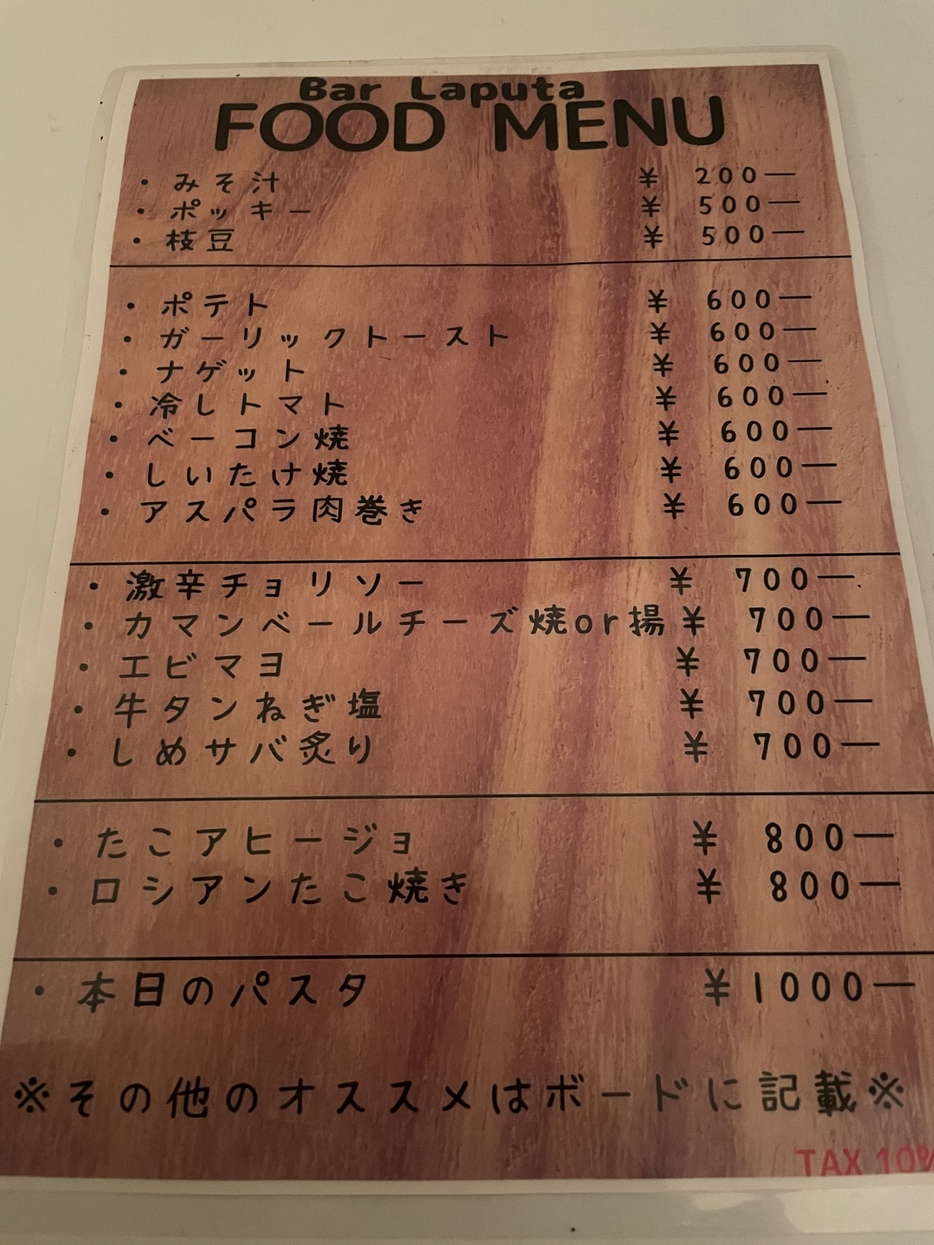 Bar Laputa
FOOD MENU
・みそ汁 ¥ 200―
・ポッキー ¥ 500―
・枝豆 ¥ 500―
・ポテト ¥ 600―
・ガーリックトースト ¥ 600―
・ナゲット ¥ 600―
・冷しトマト ¥ 600―
・ベーコン焼 ¥ 600―
・しいたけ焼 ¥ 600―
・アスパラ肉巻き ¥ 600―
・激辛チョリソー ¥ 700―
・カマンベールチーズ焼or揚 ¥ 700―
・エビマヨ ¥ 700―
・牛タンねぎ塩 ¥ 700―
・しめサバ炙り ¥ 700―
・たこアヒージョ ¥ 800―
・ロシアンたこ焼き ¥ 800―
・本日のパスタ ¥1000―
※その他のオススメはボードに記載※
TAX 10%